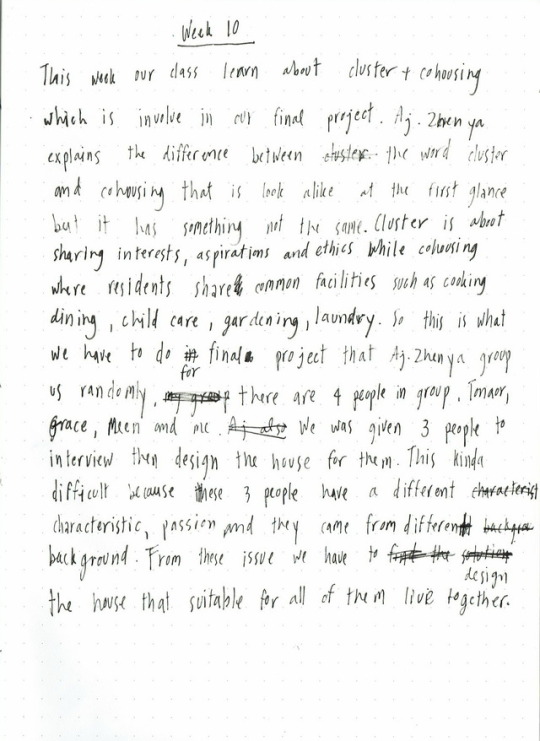 Week 10
This week our class learn about cluster + cohousing
which is involve in our final project. Aj. Zhenya
explains the difference between cluster the word cluster
and cohousing that is look alike at the first glance
but it has something not the same. Cluster is about
sharing interests, aspirations and ethics while cohousing
where residents share common facilities such as cooking
dining, child care, gardening, laundry. So this is what
we have to do in final project that Aj. Zhenya group
for
us randomly, my group there are 4 people in group. Tonaor,
Grace, Meen and me. Aj also We was given 3 people to
interview then design the house for them. This kinda
difficult because these 3 people have a different characterist
characteristic, passion and they came from different backgra
background. From these issue we have to find the solution
design
the house that suitable for all of them live together.